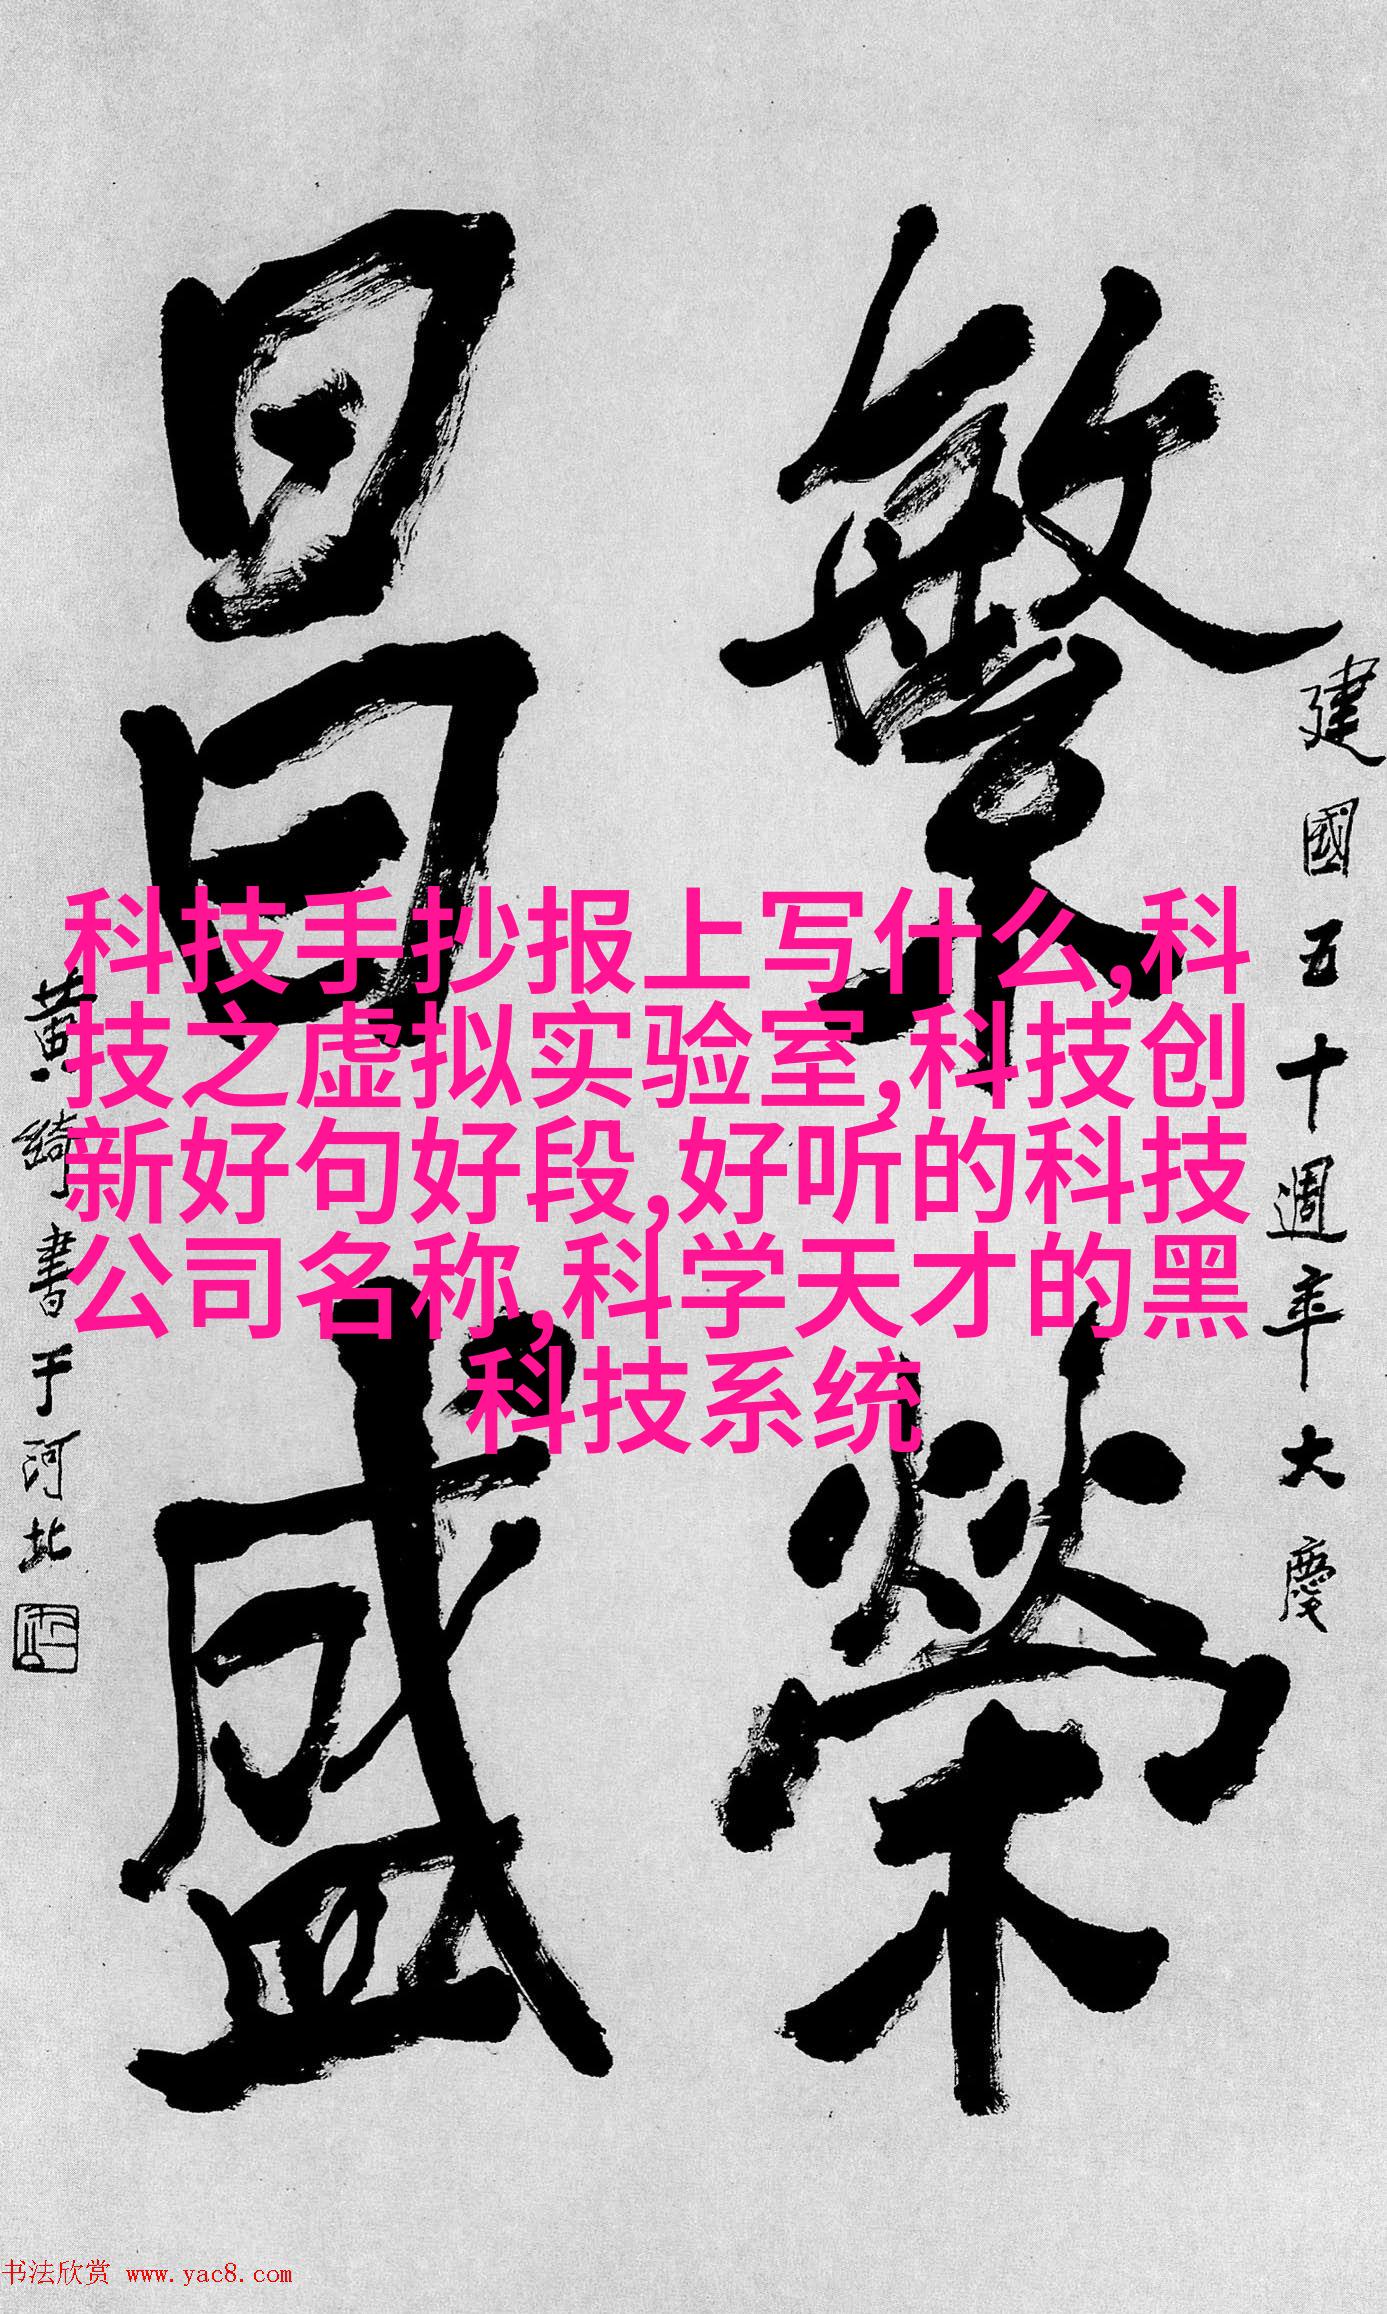 繁榮
昌盛
建國五十週年大慶
黄绮書于河北
科技手抄报上写什么,科
技之虚拟实验室,科技创
新好句好段,好听的科技
公司名称,科学天才的黑
科技系统
书法欣赏 www.yac8.com